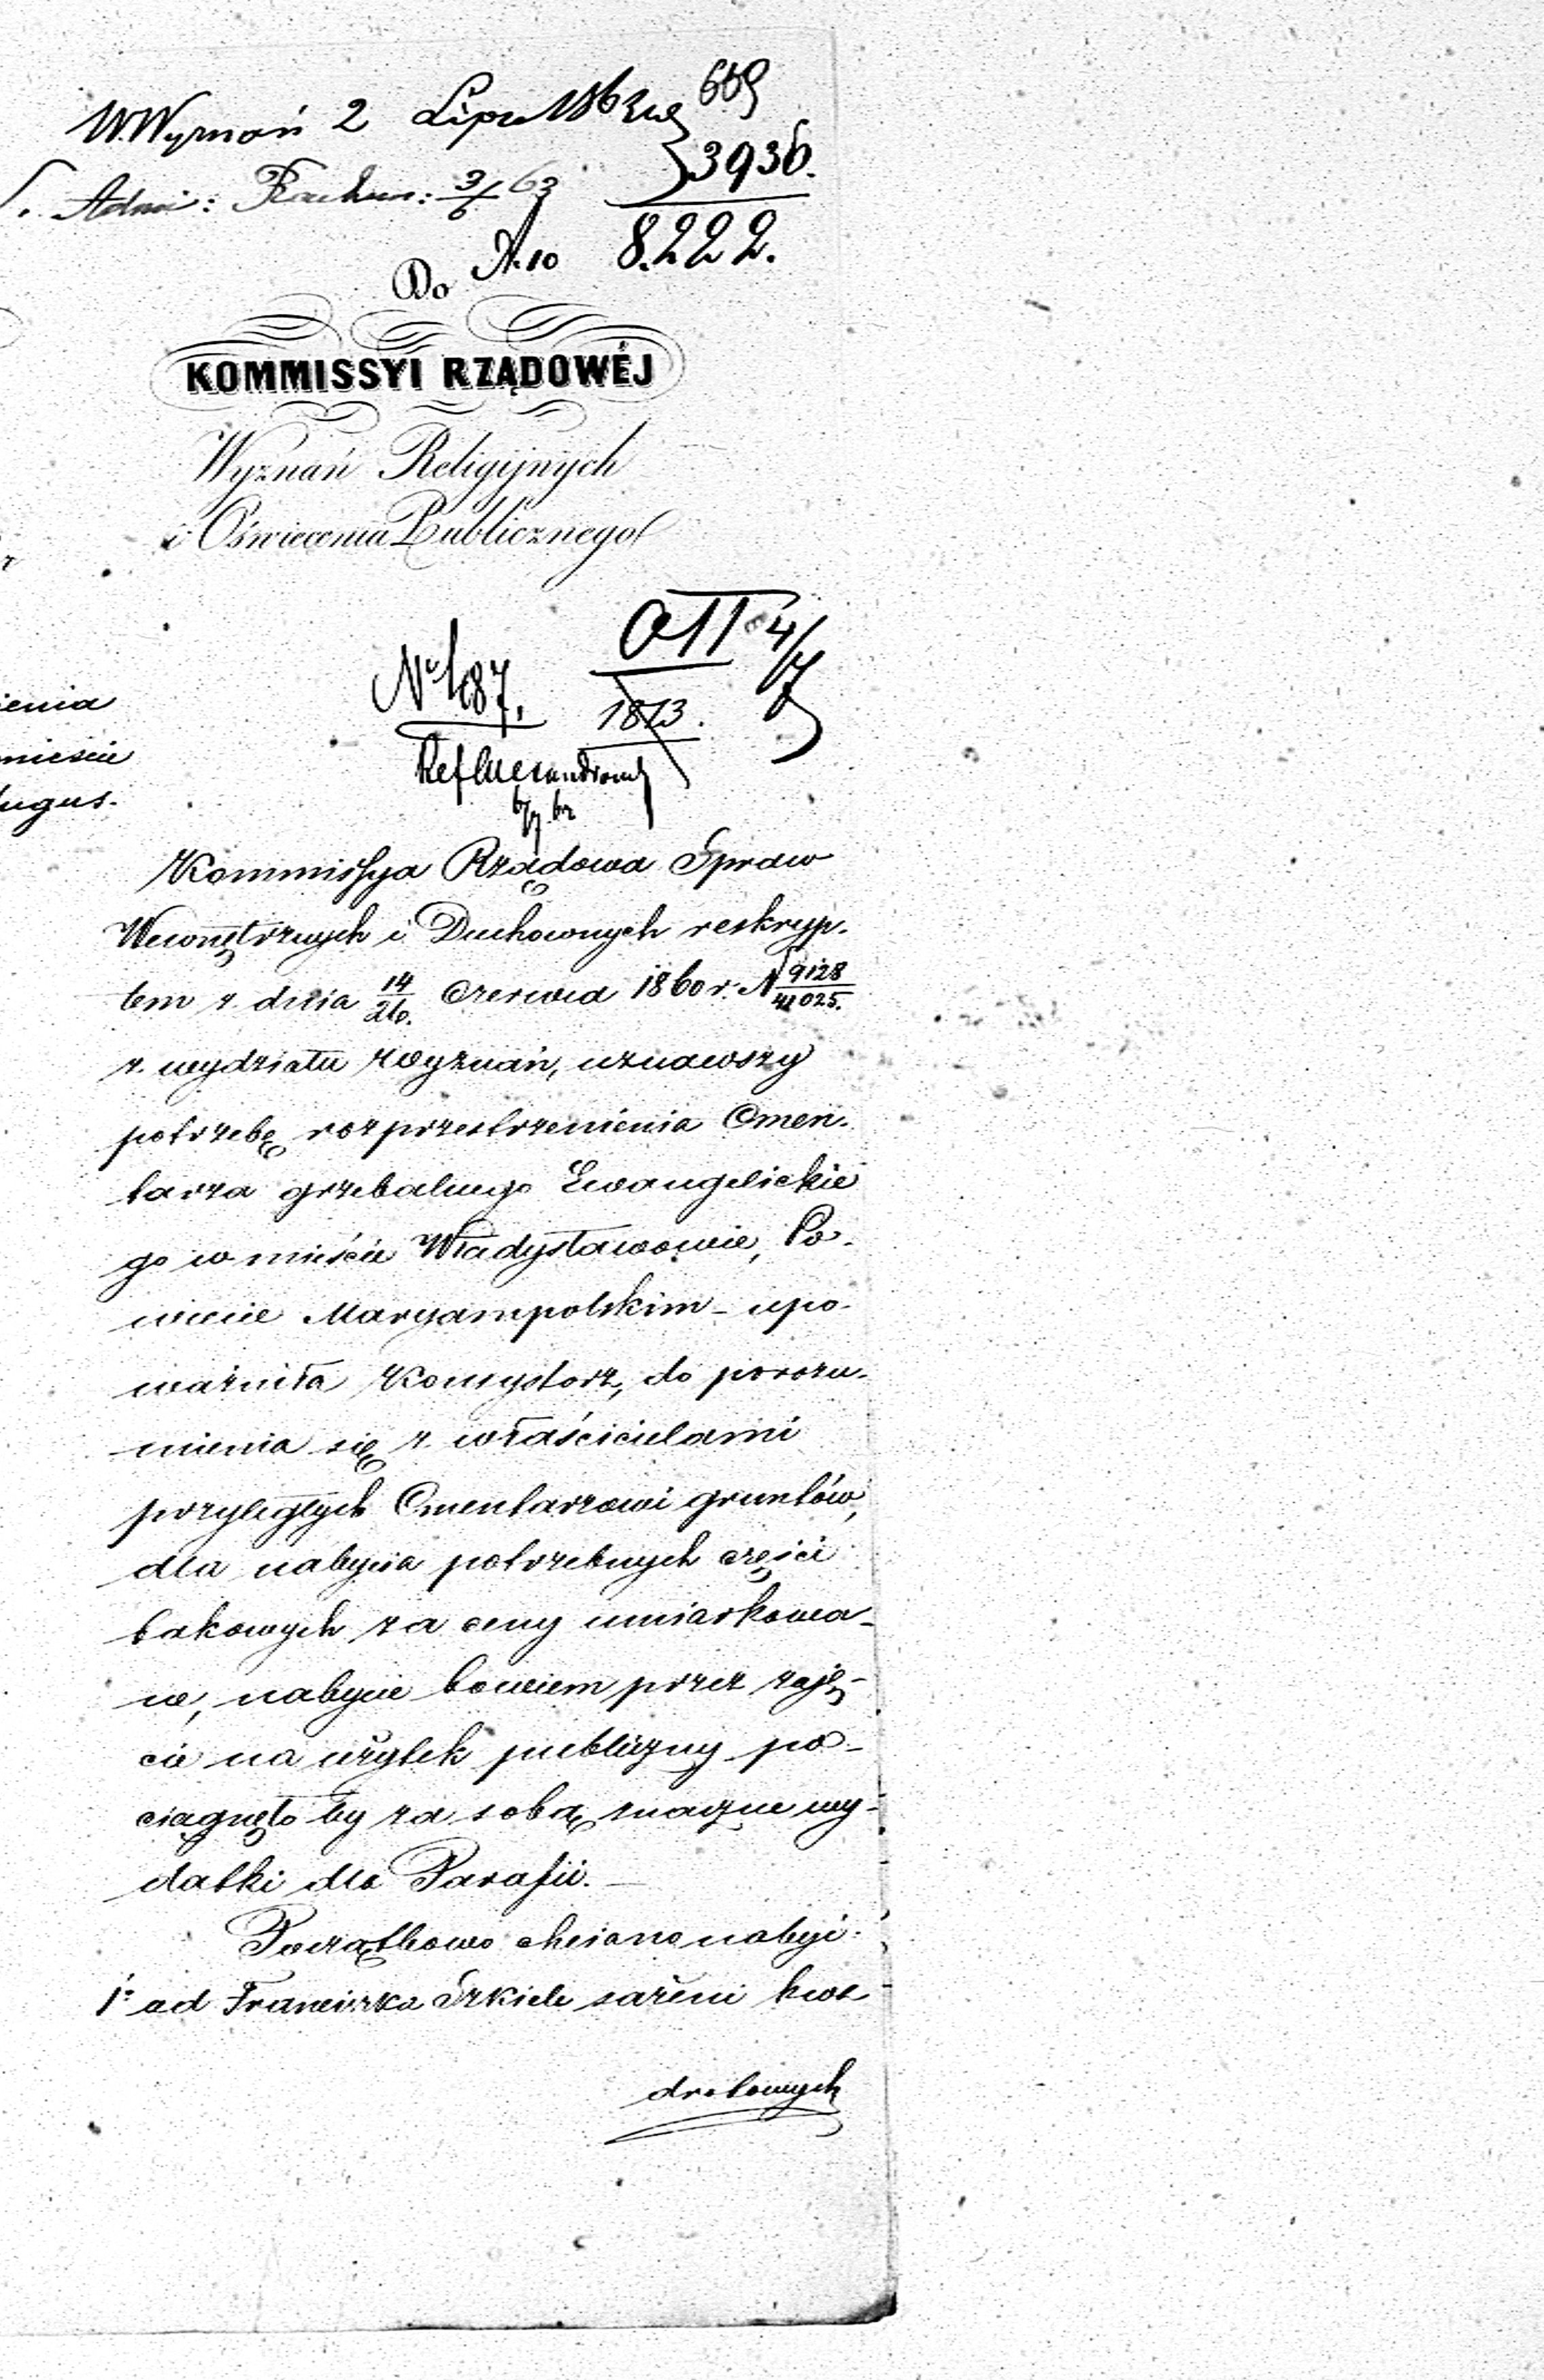 W. Wyznań 2 Lipca 1863
3936.
Adm: Rachun: 3/6 63
8.222.
Do
KOMMISSYI RZĄDOWÉJ
Wyznań Religijnych
i Oświecenia Publicznego
4/7
No 187.
1873.
ienia
mieście
ugus-
Kommissya Rządowa Spraw
Wewnętrznych i Duchownych reskryp-
tem z dnia 14/26. Czerwca 1860 r. N 9128/41025.
z wydziału Wyznań, uznawszy
potrzebę rozprzestrzenienia Cmen-
tarza grzebalnego Ewangelickie
go w mieście Władysławowie, Po-
wiecie Maryampolskim - upo-
ważniła Konsystorz, do porozu-
mienia się z właścicielami
przyległych Cmentarzowi gruntów,
dla nabycia potrzebnych części
takowych za ceny umiarkowa-
ne, nabycie bowiem przez zaję-
cie na użytek publiczny po-
ciągnęło by za sobą znaczne wy-
datki dla Parafii.
Początkowo chciano nabyć:
1o od Franciszka Szkiele sażeni kwa-
dratowych